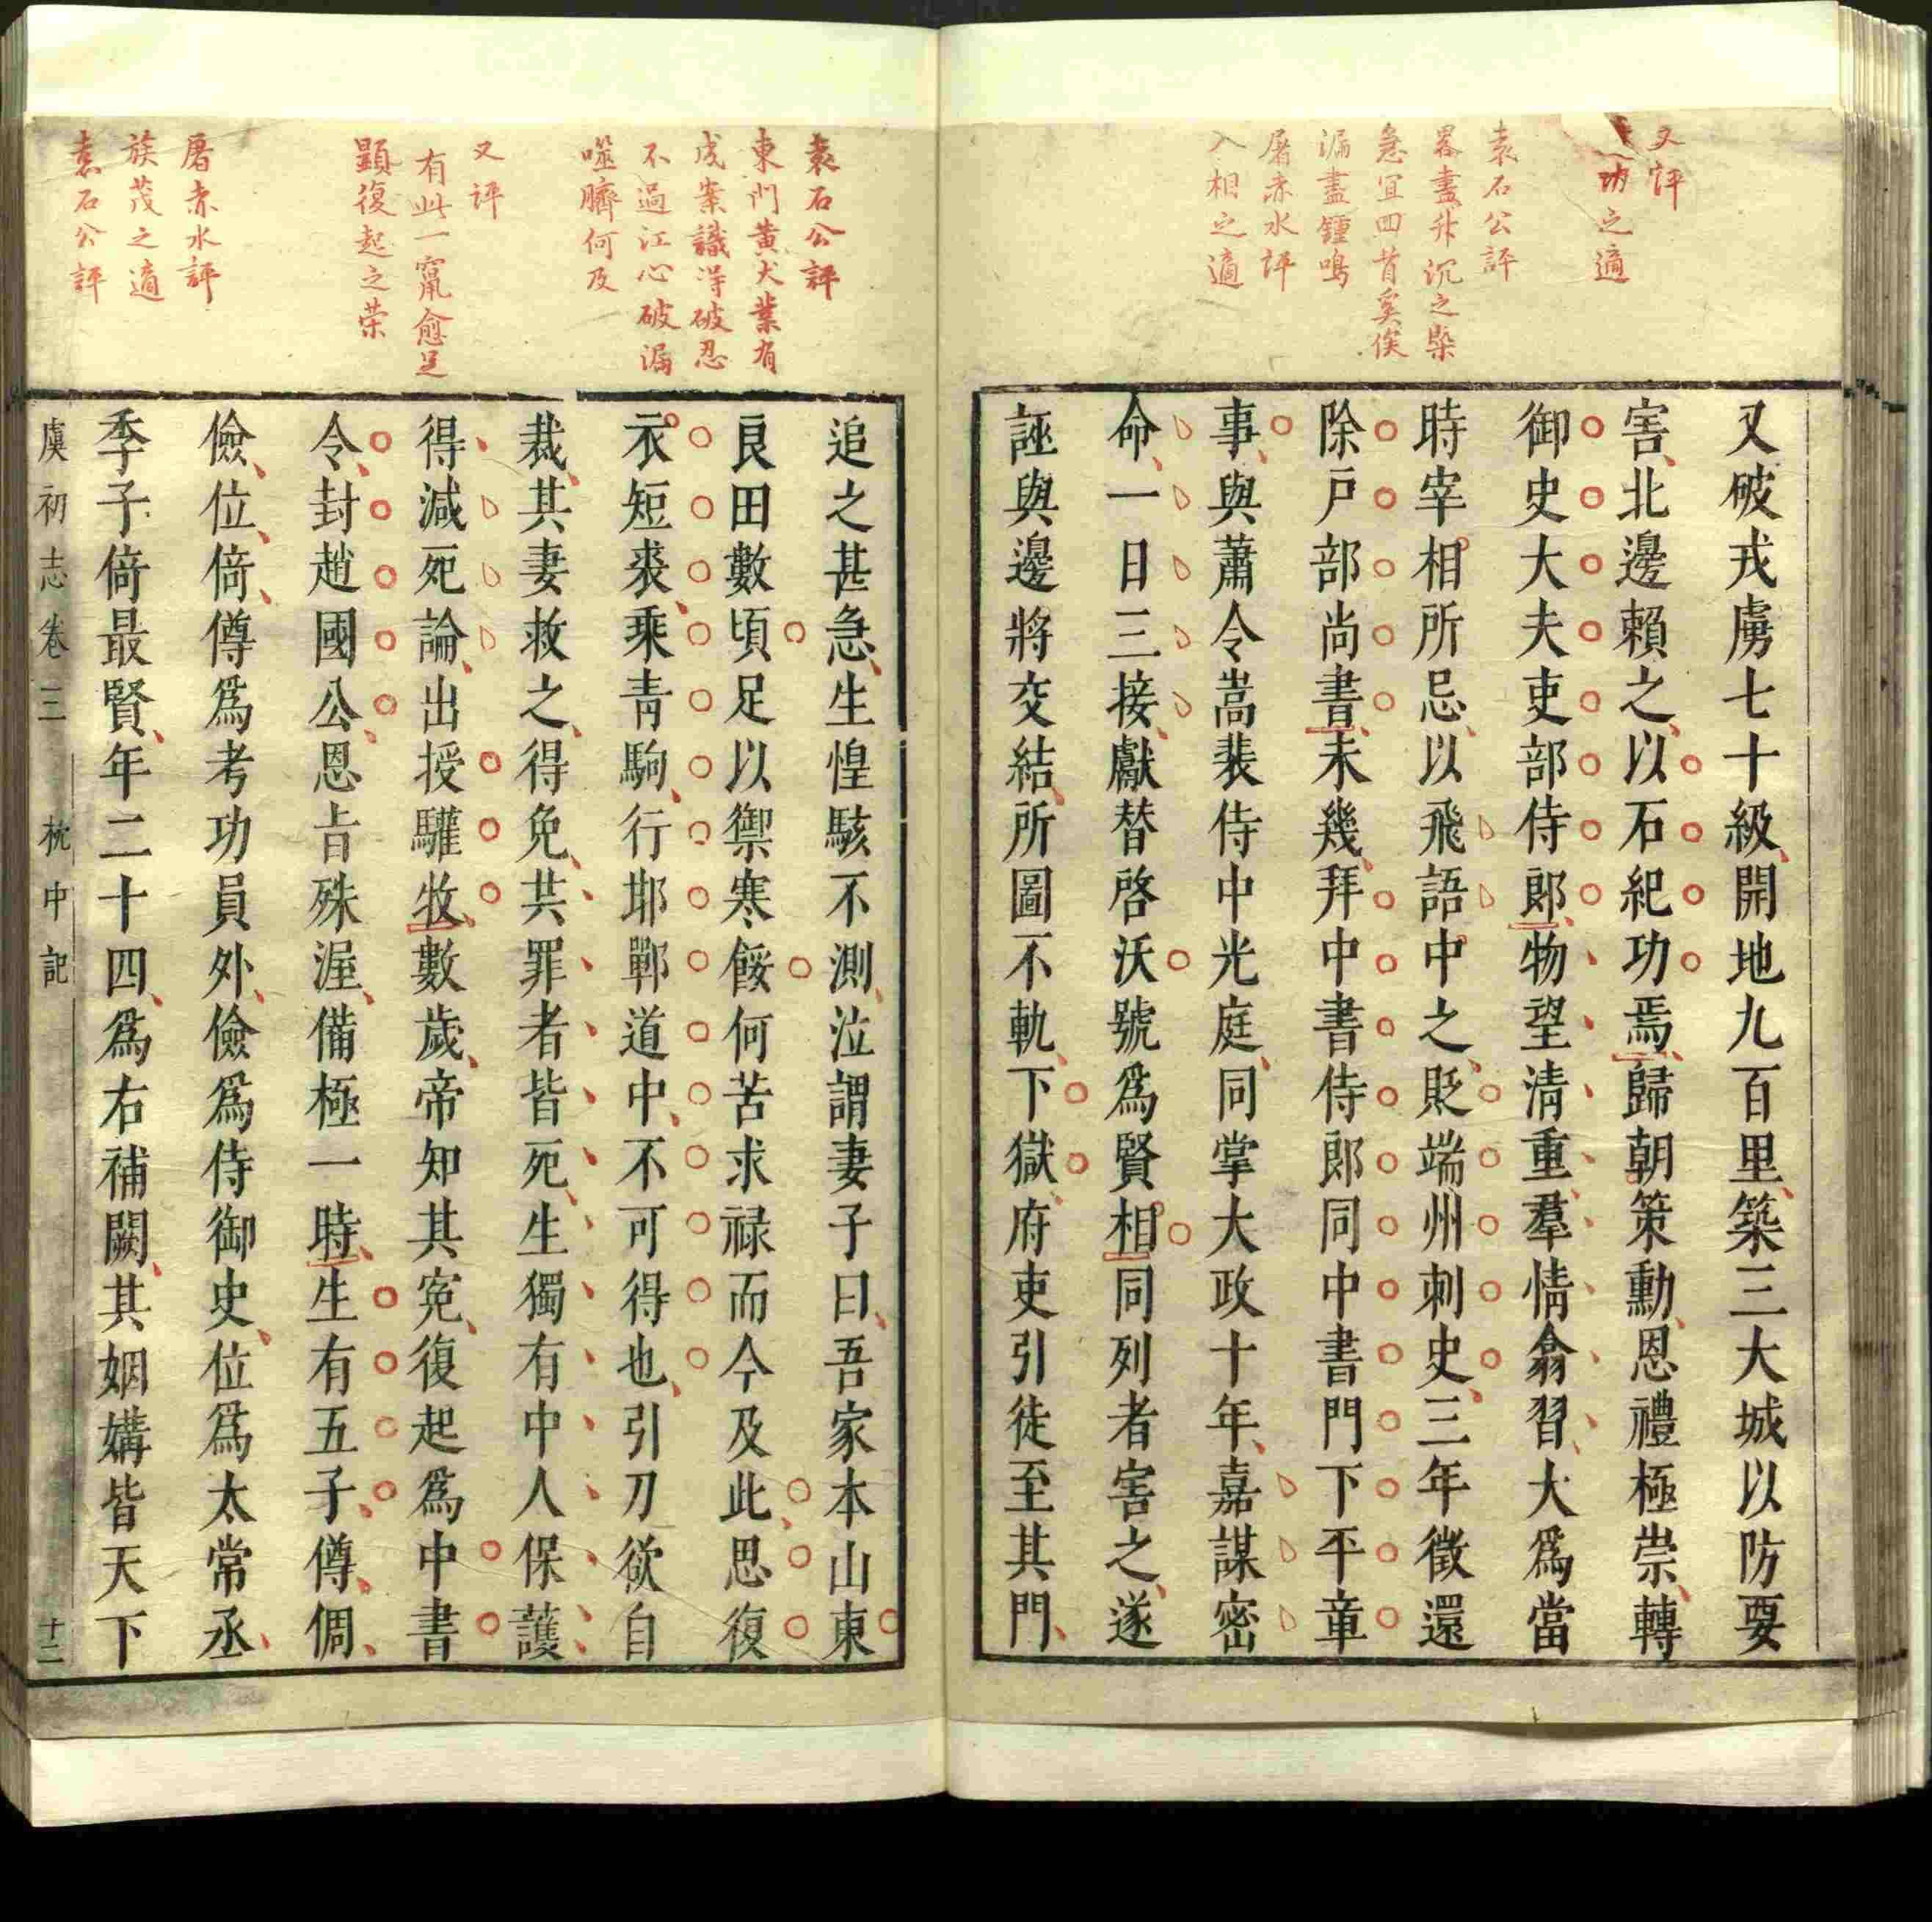 又評
功之適
袁石公評
畧盡升沉之槩
急宜回首奚俟
漏盡鍾鳴
屠赤水評
入相之適
又破戎虜七十級開地九百里築三大城以防要
害北邊賴之以石紀功焉歸朝策勳恩禮極崇轉
御史大夫吏部侍郎物望清重羣情翕習大爲當
時宰相所忌以飛語中之貶端州刺史三年徵還
除戶部尚書未幾拜中書侍郎同中書門下平章
事與蕭令嵩裴侍中光庭同掌大政十年嘉謀密
命一日三接獻替啓沃號爲賢相同列者害之遂
誣與邊將交結所圖不軌下獄府吏引徒至其門
袁石公評
東門黃犬業有
成案識得破忍
不過江心破漏
噬臍何及
又評
有此一竄愈足
顯復起之荣
屠赤水評
族茂之適
袁石公評
追之甚急生惶駭不測泣謂妻子曰吾家本山東
良田數頃足以禦寒餒何苦求禄而今及此思復
衣短裘乘青駒行邯鄲道中不可得也引刀欲自
裁其妻救之得免共罪者皆死生獨有中人保護
得減死論出授驩牧數歲帝知其寃復起爲中書
令封趙國公恩旨殊渥備極一時生有五子僔倜
儉位倚僔爲考功員外儉爲侍御史位爲太常丞
季子倚最賢年二十四爲右補闕其姻媾皆天下
虞初志卷三 枕中記 十二